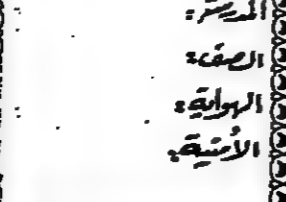 المدرسة:
الصف:
الهواية:
الأمنية: